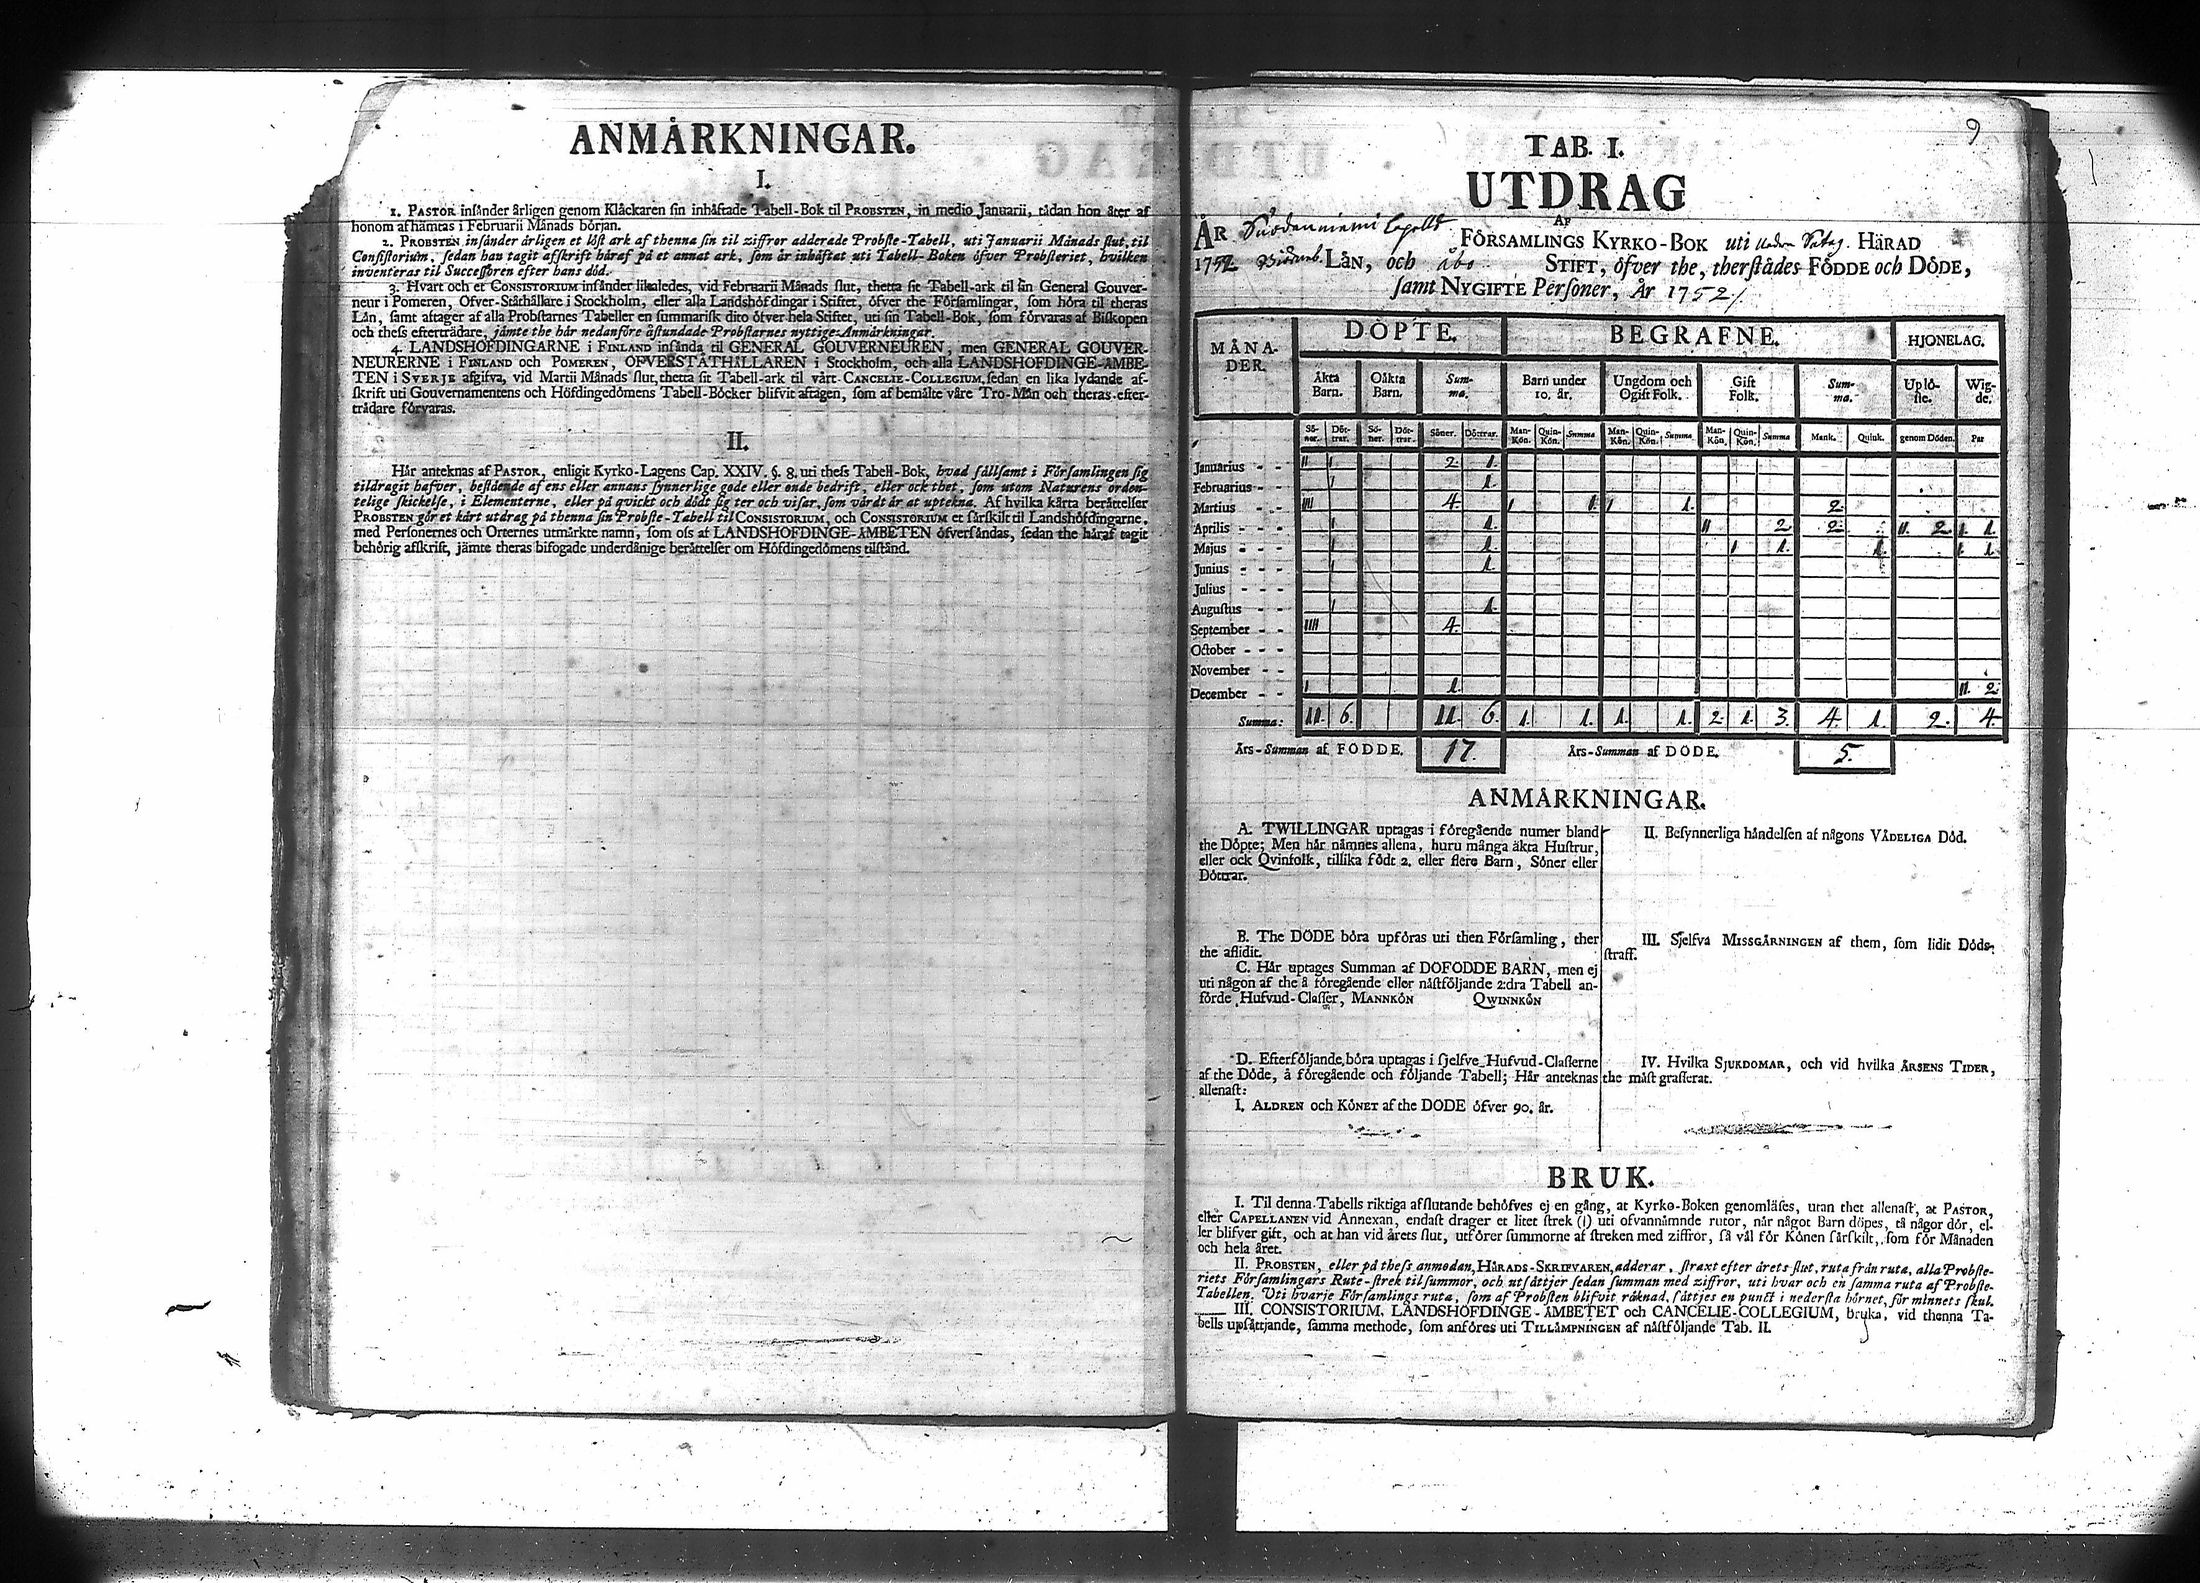 ANMÄRKNINGAR.
I.
1. PASTOR insänder årligen genom Klåckaren sin inhäftade Tabell-Bok til PROBSTEN, in medio Januarii, tådan hon åter af
honom afhämtas i Februarii Månads början.
2. PROBSTEN insänder årligen et löst ark af thenna sin til ziffror adderade Probste-Tabell, uti Januarii Månads slut, til
Consistorium, sedan han tagit afskrift häraf på et annat ark, som är inhäftat uti Tabell-Boken öfver Probsteriet, hvilken
inventeras til Successoren efter hans död.
3. Hvart och et CONSISTORIUM insänder likaledes, vid Februarii Månads slut, thetta sit Tabell-ark til sin General Gouver-
neur i Pomeren, Öfver-Ståthållare i Stockholm, eller alla Landshöfdingar i Stiftet, öfver the Församlingar, som höra til theras
Län, samt aftager af alla Probstarnes Tabeller en summarisk dito öfver hela Stiftet, uti sin Tabell-Bok, som förvaras af Biskopen
och thess efterträdare, jämte the här nedanföre åstundade Probstarnes nyttige Anmärkningar.
4. LANDSHÖFDINGARNE i FINLAND insända til GENERAL GOUVERNEUREN, men GENERAL GOUVER-
NEURERNE i FINLAND och POMEREN, ÖFVERSTÅTHÅLLAREN i Stockholm, och alla LANDSHÖFDINGE-ÄMBE-
TEN i SVERJE afgifva, vid Martii Månads slut, thetta sit Tabell-ark til vårt CANCELIE-COLLEGIUM, sedan en lika lydande af-
skrift uti Gouvernamentens och Höfdingedömens Tabell-Böcker blifvit aftagen, som af bemälte våre Tro-Män och theras efter-
trädare förvaras.
II.
Här anteknas af PASTOR, enligit Kyrko-Lagens Cap. XXIV. §. 8. uti thess Tabell-Bok, hvad sällsamt i Församlingen sig
tildragit hafver, bestående af ens eller annans synnerlige gode eller onde bedrift, eller ock thet, som utom Naturens orden-
telige skickelse, i Elementerne, eller på qvickt och dödt sig ter och visar, som värdt är at uptekna. Af hvilka kårta berättelser
PROBSTEN gör et kårt utdrag på thenna sin Probste-Tabell til CONSISTORIUM, och CONSISTORIUM et särskilt til Landshöfdingarne,
med Personernes och Orternes utmärkte namn, som oss af LANDSHÖFDINGE-ÄMBETEN öfversändas, sedan the häraf tagit
behörig afskrift, jämte theras bifogade underdånige berättelser om Höfdingedömens tilstånd.
9
TAB. I.
UTDRAG
AF
ÅR Suodenniemi Capells FÖRSAMLINGS KYRKO-BOK uti HÄRAD
1752 LÄN, och Åbo STIFT, öfver the, therstädes FÖDDE och DÖDE,
samt NYGIFTE Personer, År 1752
MÅNA-DER. DÖPTE. BEGRAFNE. HJONELAG.
Äkta Barn. Oäkta Barn. Sum-ma. Barn under 10. år. Ungdom och Ogift Folk. Gift Folk. Sum-ma. Uplö-ste. Wig-de.
Sö-ner. Döt-trar. Sö-ner. Döt-trar. Söner. Döttrar. Man-Kön. Quin-Kön. Summa Man-Kön. Quin-Kön. Summa Man-Kön. Quin-Kön. Summa Mank. Quink. genom Döden. Par
Januarius - - II I 2. 1.
Februarius - - I 1.
Martius - - IIII 4. I 1. I 1. 2.
Aprilis - - I 1. II 2 2. II. 2 I. 1.
Majus - - - I 1. I 1. 1. I. 1.
Junius - - - I 1.
Julius - - -
Augustus - - I 1.
September - - IIII 4.
October - - -
November - -
December - - I 1. II. 2.
Summa: 11. 6. 11. 6. 1. 1. 1. 1. 2. 1. 3. 4. 1. 2. 4.
Års-Summan af FÖDDE. 17. Års-Summan af DÖDE. 5.
ANMÄRKNINGAR.
A. TWILLINGAR uptagas i föregående numer bland
the Döpte; Men här nämnes allena, huru många äkta Hustrur,
eller ock Qvinfolk, tillika födt 2. eller flere Barn, Söner eller
Döttrar.
B. The DÖDE böra upföras uti then Församling, ther
the aflidit.
C. Här uptages Summan af DÖFÖDDE BARN, men ej
uti någon af the å föregående eller nästföljande 2:dra Tabell an-
förde Hufvud-Classer, MANNKÖN QWINNKÖN
D. Efterföljande böra uptagas i sjelfve Hufvud-Classerne
af the Döde, å föregående och följande Tabell; Här anteknas
allenast:
I. ÅLDREN och KÖNET af the DÖDE öfver 90. år.
II. Besynnerliga händelsen af någons VÅDELIGA Död.
III. Sjelfva MISSGÄRNINGEN af them, som lidit Döds-
straff.
IV. Hvilka SJUKDOMAR, och vid hvilka ÅRSENS TIDER,
the mäst grasserat.
BRUK.
I. Til denna Tabells riktiga afslutande behöfves ej en gång, at Kyrko-Boken genomläses, utan thet allenast, at PASTOR,
eller CAPELLANEN vid Annexan, endast drager et litet strek (|) uti ofvannämnde rutor, när något Barn döpes, tå någor dör, el-
ler blifver gift, och at han vid årets slut, utförer summorne af streken med ziffror, så väl för Könen särskilt, som för Månaden
och hela året.
II. PROBSTEN, eller på thess anmodan, HÄRADS-SKRIFVAREN, adderar, straxt efter årets slut, ruta från ruta, alla Probste-
riets Församlingars Rute-strek til summor, och utsättjer sedan summan med ziffror, uti hvar och en samma ruta af Probste-
Tabellen. Uti hvarje Församlings ruta, som af Probsten blifvit räknad, sättjes en punct i nedersta hörnet, för minnets skul.
III. CONSISTORIUM, LANDSHÖFDINGE-ÄMBETET och CANCELIE-COLLEGIUM, bruka, vid thenna Ta-
bells upsättjande, samma methode, som anföres uti TILLÄMPNINGEN af nästföljande Tab. II.